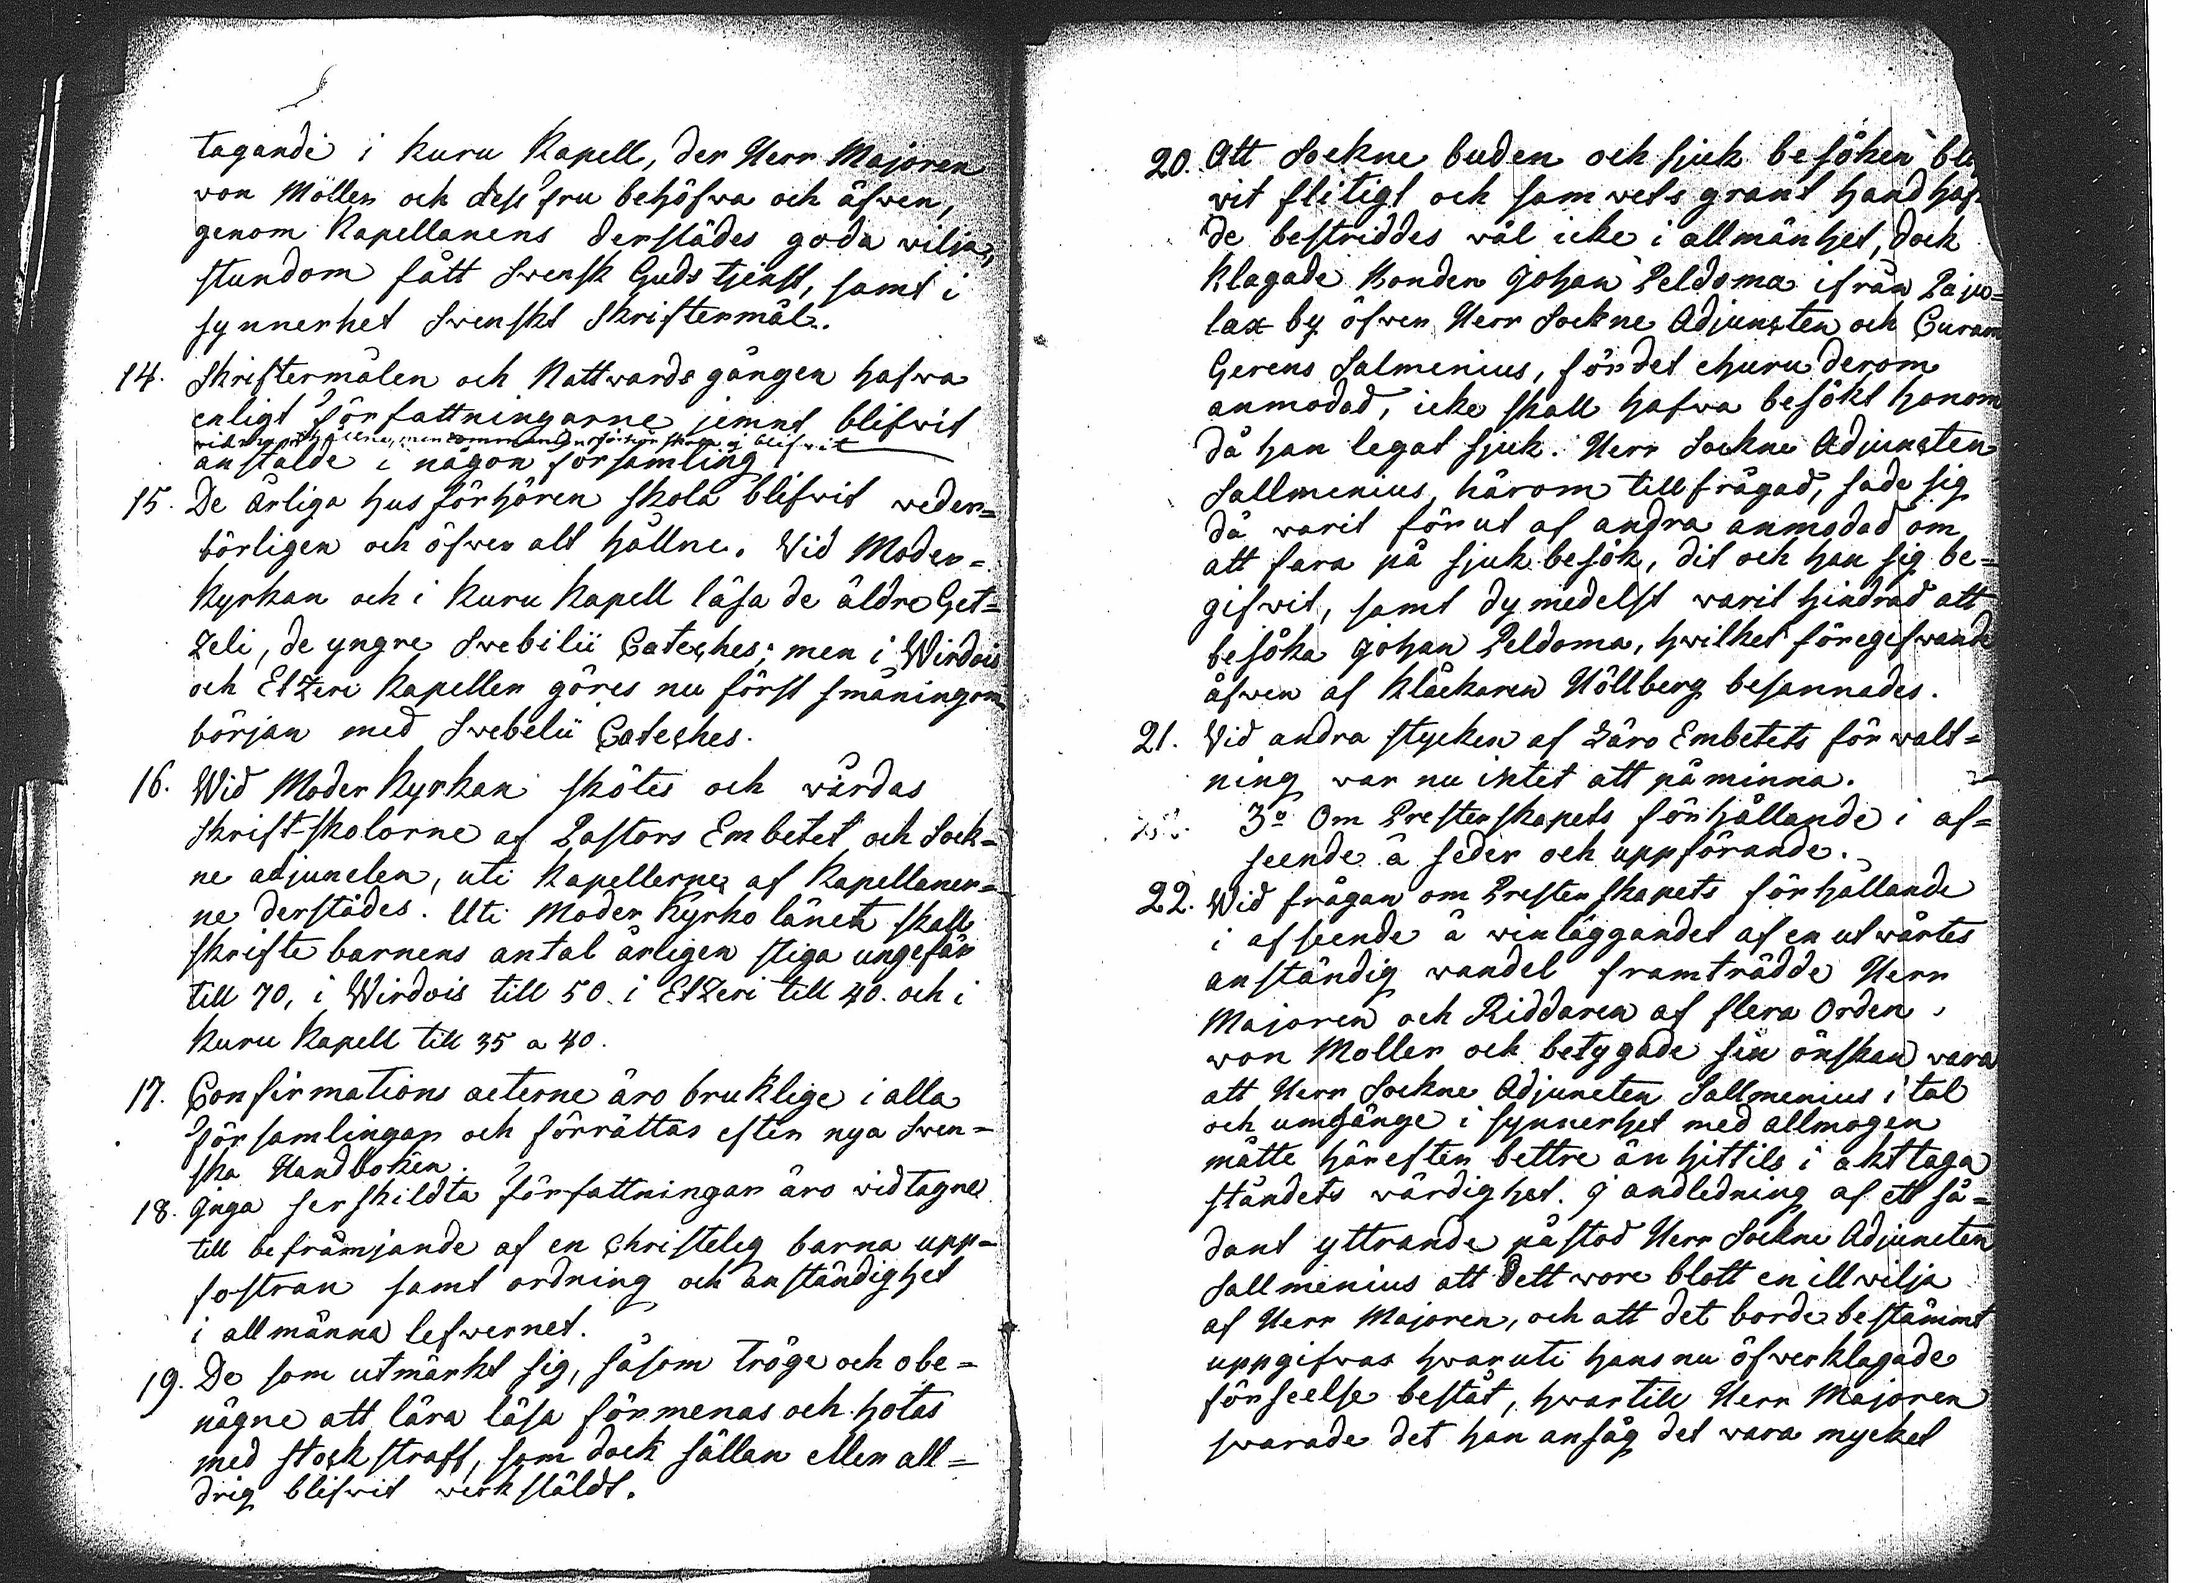 tagande i Kuru Kapell, der Herr Majoren
von Möller och dess fru behöfwa och äfwen,
genom Kapellanens derstädes goda wilja,
stundom fått Swensk Guds tjenst, samt i
synnerhet Swenskt Skriftermål.
14. Skriftermålen och Nattwards gången hafwa
enligt Författningarne jemnt blifwit
widmagthållne, men ej blifwit
anstälde i någon församling
15. De årliga hus förhören skola blifwit weder=
börligen och öfwer alt hållne. Wid Moder=
Kyrkan och i Kuru Kapell läsa de äldre Get=
Zeli, de yngre Swebilii Cateches; men i Wirdois
och EtZeri Kapeller göres nu först småningom
början med Swebelii Cateches.
16. Wid Moder Kyrkan skötes och wårdas
Skrift-skolorne af Pastors Embetet och Sock=
ne adjuncten, uti Kapellerne af Kapellaner=
ne derstädes. Uti Moder Kyrko länet skall
skrifte barnens antal årligen stiga ungefär
till 70, i Wirdois till 50. i EtZeri till 40. och i
Kuru Kapell till 35 a 40.
17. Confirmations acterne äro bruklige i alla
Församlingar och förrättas efter nya Swen=
ska Handboken.
18. Inga serskildta Författningar äro widtagne
till befrämjande af en Christelig barna upp=
fostran samt ordning och anständighet
i allmänna lefwernet.
19. De som utmärkt sig, såsom tröge och obe=
nägne att lära läsa förmenas och hotas
med stockstraff, som dock sällan eller all=
drig blifwit werkstäldt.
20. Att Sockne buden och sjuk besöken bli
wit flitigt och samwets grant handhaf
de bestriddes wäl icke i allmänhet, dock
klagade Bonden Johan Peldoma ifrån Paju=
lax by öfwer Herr Sockne Adjuncten och Curam
Gerens Salmenius, för det ehuru derom
anmodad, icke skall hafwa besökt honom
då han legat sjuk. Herr Sockne Adjuncten
Sallmenius, härom tillfrågad, sade sig
då warit förut af andra anmodad om
att fara på sjuk besök, dit och han sig be=
gifwit, samt dymedelst warit hindrad att
besöka Johan Peldoma, hwilket föregifwande
äfwen af Klåckaren Höllberg besannades.
21. Wid andra stycken af Läro Embetets förwalt=
ning war nu intet att påminna.
3º Om Presterskapets förhållande i af=
seende å seder och uppförande.
22. Wid frågan om Presterskapets förhållande
i afseende å winläggandet af en utwärtes
anständig wandel framträdde Herr
Majoren och Riddaren af flera Orden,
von Moller och betygade sin önskan wara
att Herr Sockne Adjuncten Sallmenius i tal
och umgänge i synnerhet med allmogen
måtte härefter bettre än hittils i akttaga
ståndets wärdighet. I andledning af ett så=
dant yttrande påstod Herr Sockne Adjuncten
Sallmenius att dett wore blott en illwilja
af Herr Majoren, och att det borde bestämmt
uppgifwas hwaruti hans nu öfwerklagade
förseelse bestått, hwartill Herr Majoren
swarade det han ansåg det wara mycket